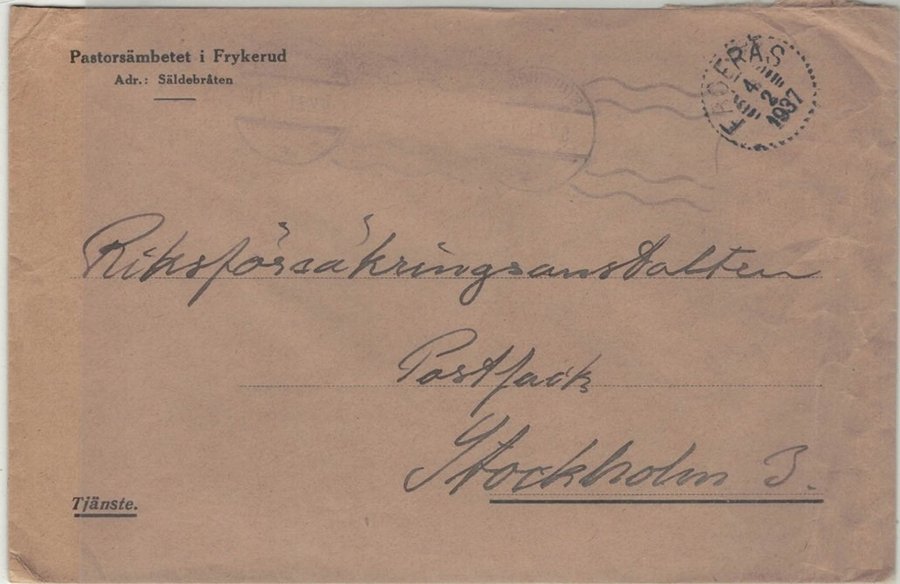 Pastorsämbetet i Frykerud
Adr.: Säldebråten
FAGERÅS
4
2
1937
Riksförsäkringsanstalten
Postfack
Stockholm 3.
Tjänste.